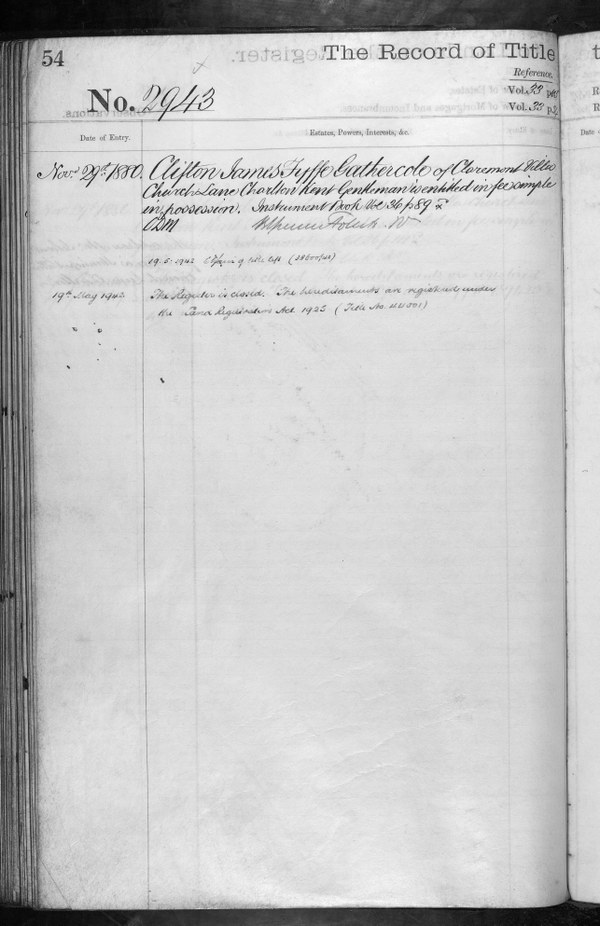 54
The Record of Title
Reference.
No. 2943
Vol. 33
Vol. 33 p.
Date of Entry.
Estates, Powers, Interests, &c.
Nov. 29th 1880. Clifton James Fyffe Gathercole of Claremont Villa
Church Lane Charlton Kent Gentleman is entitled in fee simple
in possession. Instrument Book Vol 36 p 89
19.5.1942 of title left
19th May 1942 The Register is closed. The hereditaments are registered under
the Land Registration Act 1925 (Title No. 44501)